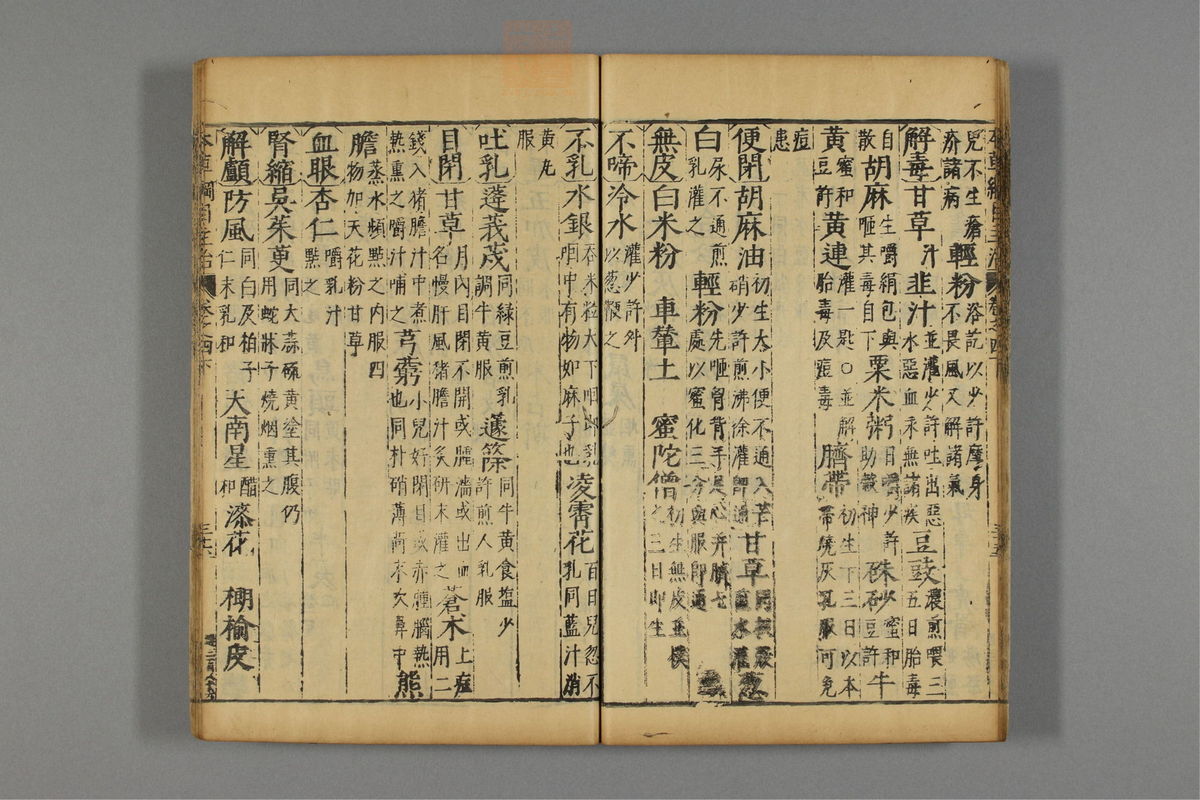 兒不生瘡疥諸病 輕粉 浴訖以少許摩身不畏風又解諸氣
解毒甘草 汁 韭汁 並灌少許吐出惡水惡血永無諸疾 豆豉 濃煎喂三五日胎毒
自散 胡麻 生嚼絹包與咂其毒自下 粟米粥 日嚼少許助穀神 硃砂 蜜和豆許 牛
黃 蜜和豆許 黃連 灌一匙○並解胎毒及痘毒 臍帶 初生下三日以本帶燒灰乳服可免
痘患
便閉胡麻油 初生大小便不通入芒硝少許煎沸徐灌即通 甘草 蔥
白 尿不通煎乳灌之 輕粉 先咂胸背手足心并臍七處以蜜化三分與服即通
無皮白米粉 車輦土 蜜陀僧 初生無皮並撲之三日即生
不啼冷水 灌少許外以蔥鞭之
不乳水銀 吞米粒大下咽即乳咽中有物如麻子也 凌霄花 百日兒忽不乳同藍汁消
黃丸服
吐乳蓬莪茂 同綠豆煎乳調牛黃服 蘧篨 同牛黃食塩少許煎人乳服
目閉甘草 月內目閉不開或腫濇或出血名慢肝風猪膽汁炙研末灌之 蒼朮 上症用二
錢入猪膽汁中煮熱熏之嚼汁哺之 芎藭 小兒好閉目或赤腫腦熱也同朴硝薄荷末吹鼻中 熊
膽 蒸水頻點之內服四物加天花粉甘草
血眼杏仁 嚼乳汁點之
腎縮吳茱萸 同大蒜硫黃塗其腹仍用蛇牀子燒烟熏之
解顱防風 同白及柏子仁末乳和 天南星 醋和 漆花 榔榆皮